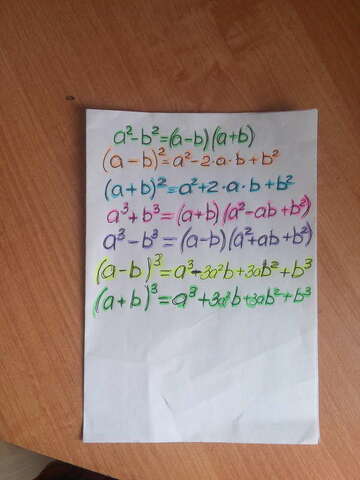 a²-b²=(a-b)(a+b)
(a-b)²=a²-2·a·b+b²
(a+b)²=a²+2·a·b+b²
a³+b³=(a+b)(a²-ab+b²)
a³-b³=(a-b)(a²+ab+b²)
(a-b)³=a³+3a²b+3ab²+b³
(a+b)³=a³+3a²b+3ab²+b³